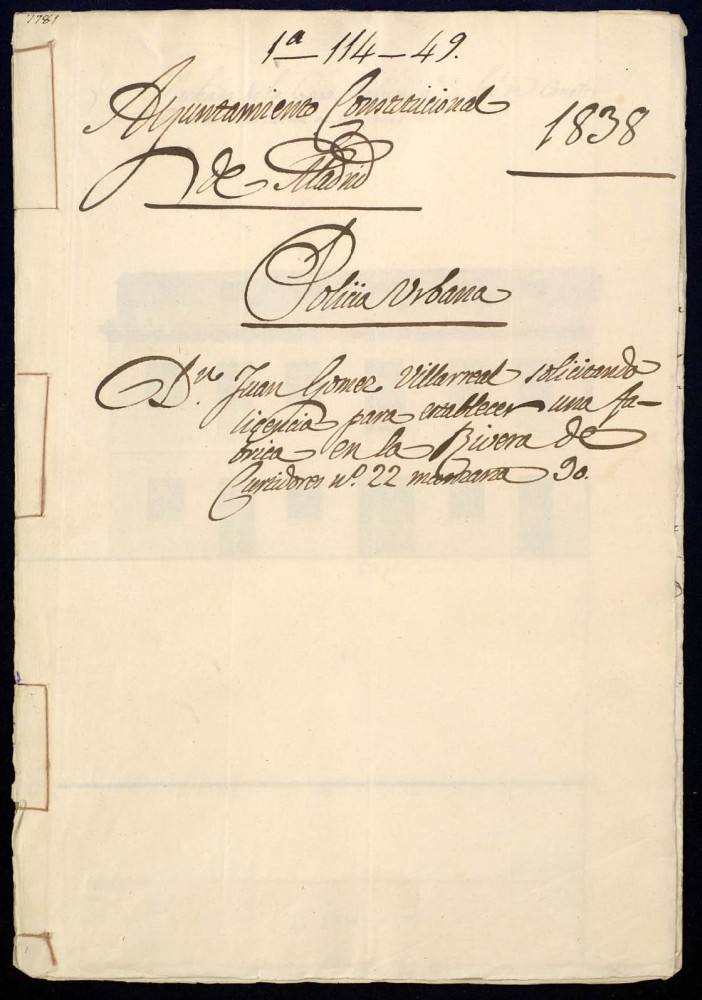 1ª—114—49.
Ayuntamiento Constitucional
1838
de Madrid
Policia Urbana
Dn. Juan Gomez Villarreal solicitando
licencia para establecer una fa-
brica en la Rivera de
Curtidores nº. 22 manzana 90.